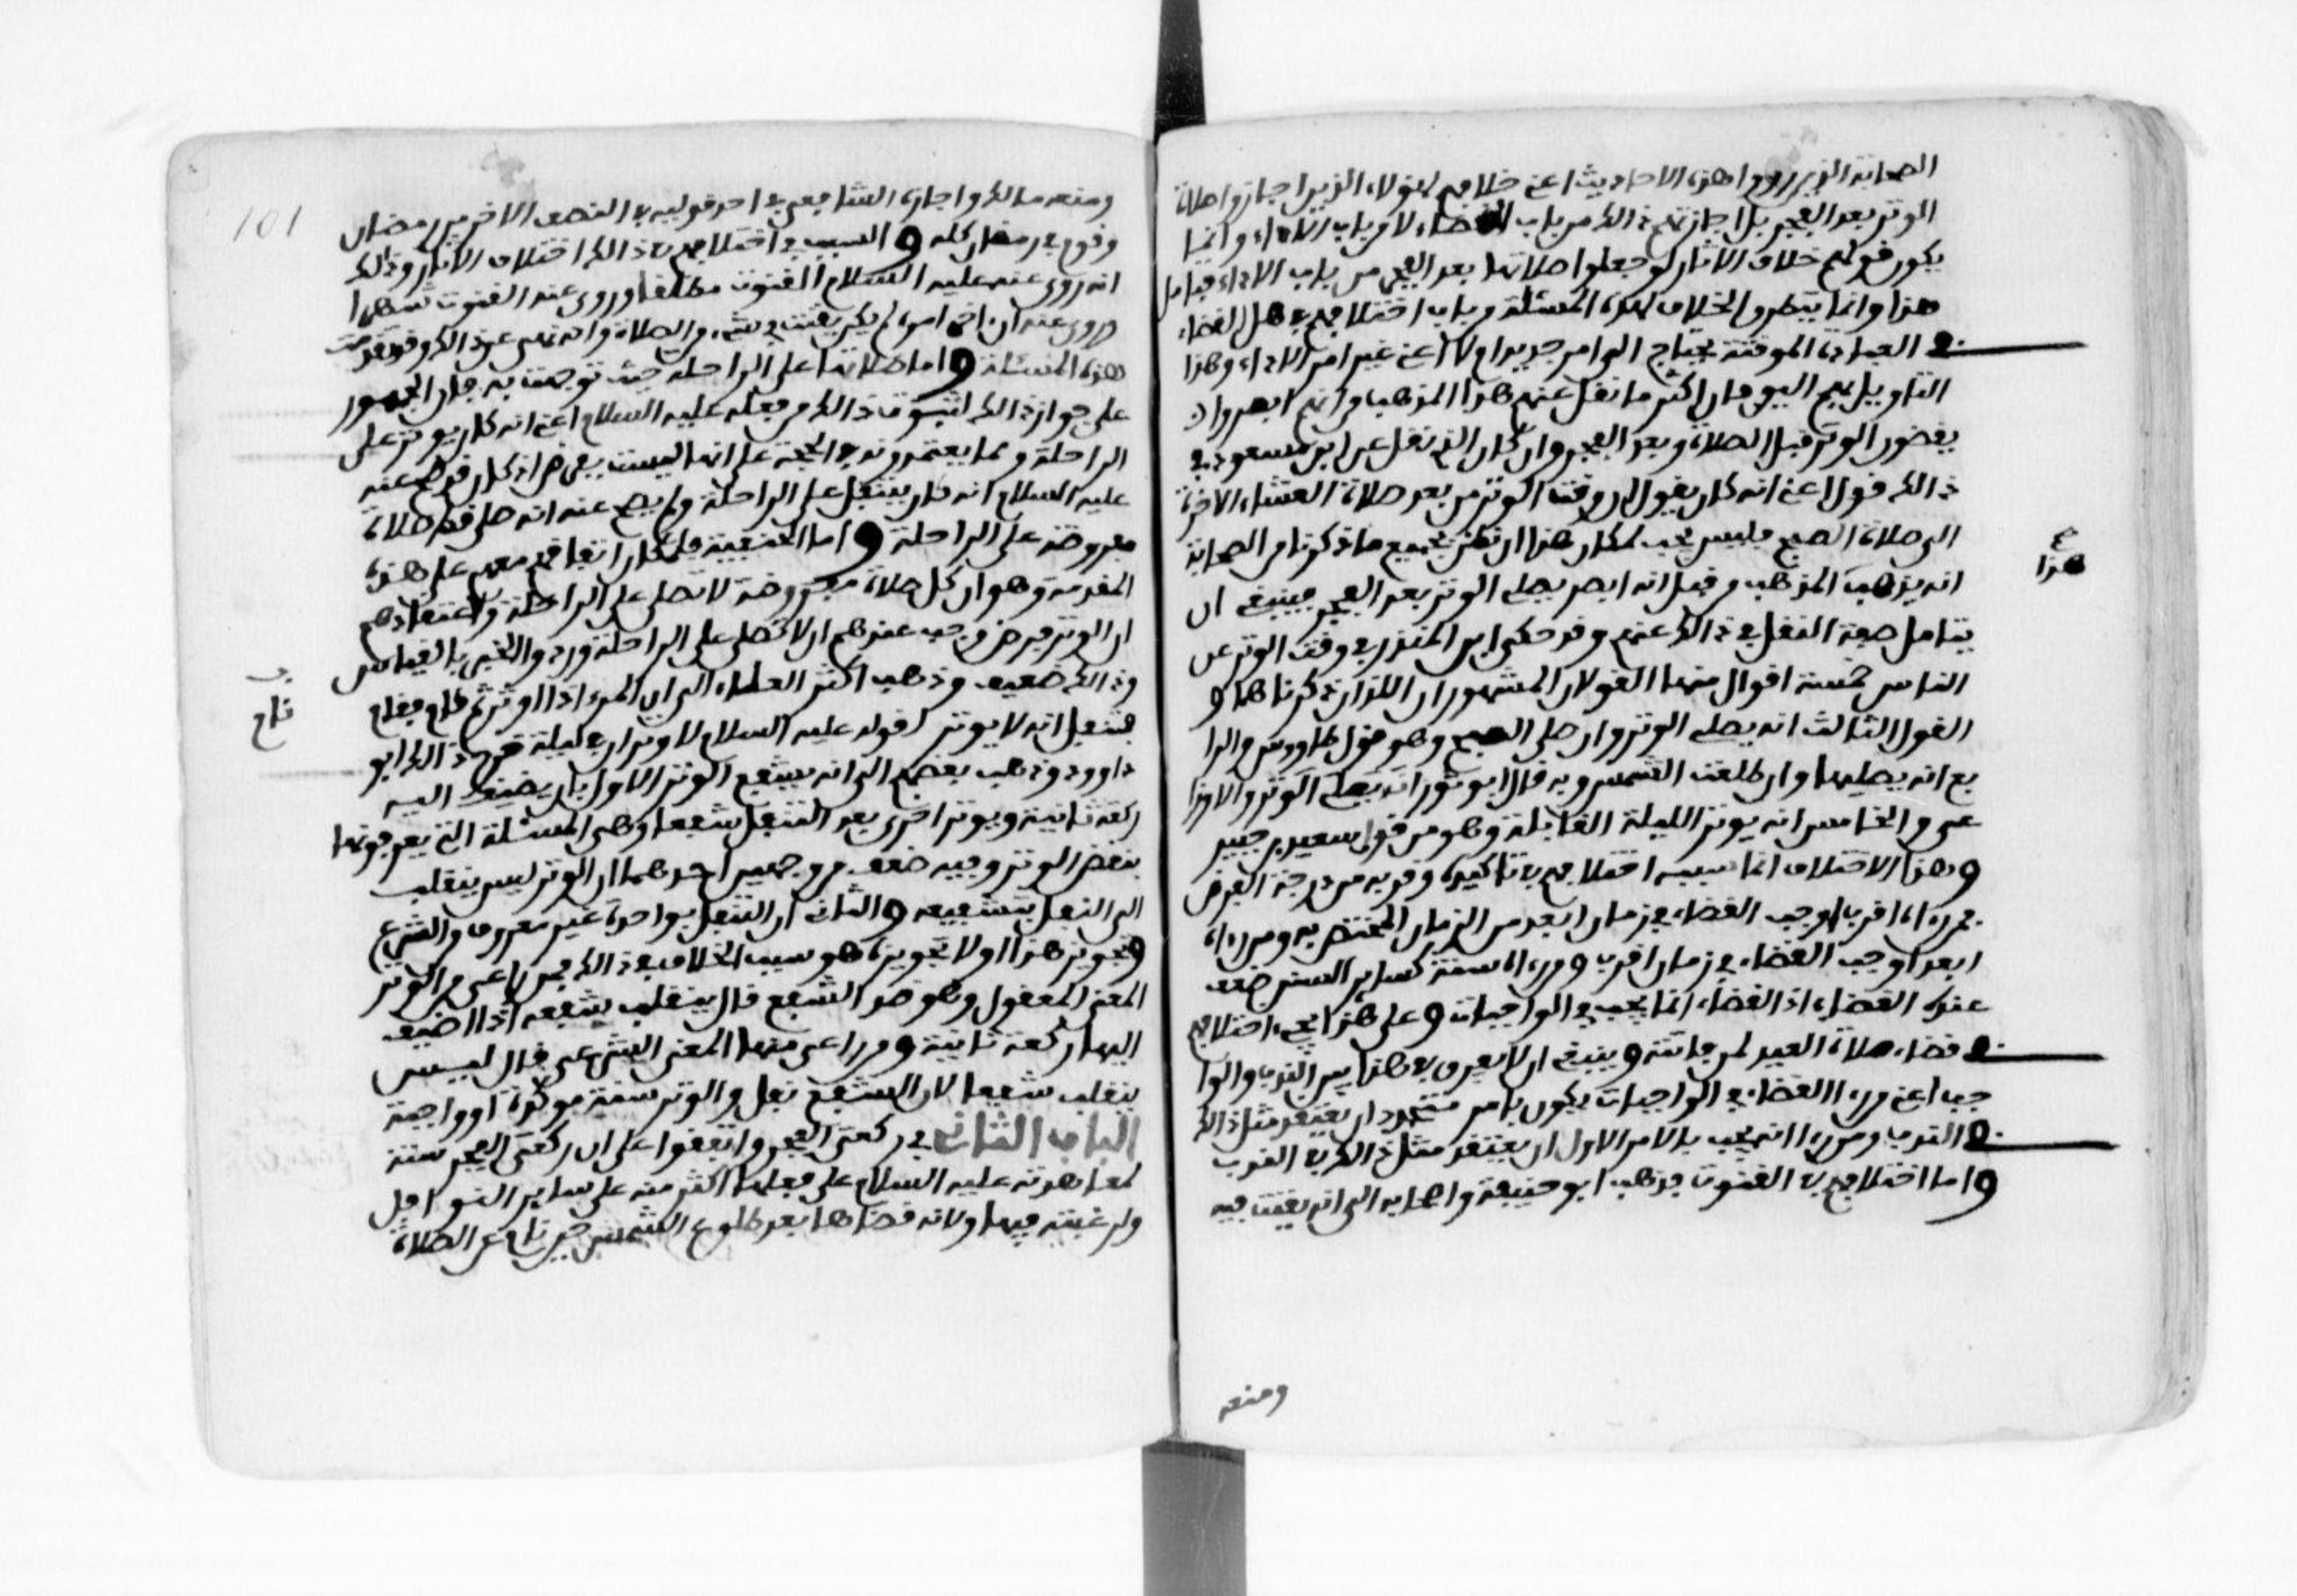 الصحابة الذين رووا هذه الاحاديث اعني خلافهم لهؤلاء الذين اجازوا صلاة
الوتر بعد الفجر بل اجازتهم ذالك من باب القضاء لا من باب الاداء وانما
يكون قولهم خلاف الاثار لو جعلوا صلاتها بعد الفجر من باب الاداء فتامل
هذا وانما يتطرق الخلاف لهذه المسئلة من باب اختلافهم في هل القضاء
في العبادة الموقتة يحتاج الى امر جديد ام لا اعني غير امر الاداء وهذا
التاويل بهم اليق فان اكثر ما نقل عنهم هذا المذهب من انهم ابصروا
يقضون الوتر قبل الصلاة وبعد الفجر وان كان الذي نقل عن ابن مسعود في
ذالك قول اعني انه كان يقول ان وقت الوتر من بعد صلاة العشاء الاخرة
الى صلاة الصبح فليس يجب لمكان هذا ان نظن بجميع ما ذكرنا من الصحابة
هذا
انه يذهب المذهب من قبل انه ابصر يصلي الوتر بعد الفجر فينبغي ان
يتامل صفة النقل في ذالك عنهم وقد حكى ابن المنذر في وقت الوتر عن
الناس خمسة اقوال منها القولان المشهوران اللذان ذكرناهما و
القول الثالث انه يصلي الوتر وان صلى الصبح وهو قول طاووس والرا
بع انه يصليها وان طلعت الشمس وبه قال ابو ثور انه يصلي الوتر والاوزا
عي والخامس انه يوتر الليلة القابلة وهو من قول سعيد بن جبير
وهذا الاختلاف انما سببه اختلافهم في تاكيده وقربه من درجة الفرض
فمن رءاه اقرب اوجب القضاء في زمان ابعد من الزمان المختص به ومن رءاه
ابعد اوجب القضاء في زمان اقرب ومن رءاه سنة كساير السنن ضعف
عنده القضاء اذ القضاء انما يجب في الواجبات وعلى هذا يجيء اختلافهم
في قضاء صلاة العيد لمن فاتته وينبغي ان لا يفرق في هذا بين الندب والوا
جب اعني من رءا القضاء في الواجبات يكون بامر متجدد ان يعتقد مثل ذالك
في الندب ومن رءا انه يجب بالامر الاول ان يعتقد مثل ذالك في الندب
واما اختلافهم في القنوت فذهب ابو حنيفة واصحابه الى انه يقنت فيه
ومنعه
101
ومنعه مالك واجازه الشافعي في احد قوليه في النصف الاخر من رمضان
وقوم في رمضان كله والسبب في اختلافهم في ذالك اختلاف الاثار وذالك
انه روي عنه عليه السلام القنوت مطلقا وروي عنه القنوت شهرا
وروي عنه انه اخر امره لم يكن يقنت في شيء من الصلاة وانه نهى عن ذالك وقد تقدمت
هذه المسئلة واما صلاتها على الراحلة حيث توجهت به فان الجمهور
على جواز ذالك لثبوت ذالك من فعله عليه السلام اعني انه كان يوتر على
الراحلة ومما يعتمدونه في الحجة على انها ليست بفرض اذ كان قد صح عنه
عليه السلام انه كان يتنفل على الراحلة ولم يصح عنه انه صلى قط صلاة
مفروضة على الراحلة واما الحنفية فلمكان اتفاقهم معهم على هذه
المقدمة وهو ان كل صلاة مفروضة لا تصلى على الراحلة واعتقادهم
ان الوتر فرض وجب عندهم ان لا تصلى على الراحلة وردوا الخبر بالقياس
وذالك ضعيف وذهب اكثر العلماء الى ان المرء اذا اوتر ثم نام فقام
نام
فتنفل انه لا يوتر لقوله عليه السلام لا وتران في ليلة خرج ذالك ابو
داوود وذهب بعضهم الى انه يشفع الوتر الاول بان يضيف اليه
ركعة ثانية ويوتر اخرى بعد التنفل شفعا وهي المسئلة التي يعرفونها
بنقض الوتر وفيه ضعف من وجهين احدهما ان الوتر ليس ينقلب
الى النفل بتشفيعه والثاني ان التنفل بواحدة غير معروف من الشرع
وتجويز هذا او لا تجويزه هو سبب الخلاف في ذالك فمن راعى من الوتر
المعنى المعقول وهو ضد الشفع قال ينقلب شفعه اذا اضيف
اليها ركعة ثانية ومن راعى منها المعنى الشرعي قال ليس
ينقلب شفعا لان الشفع نفل والوتر سنة موكدة او واجبة
الباب الثاني في ركعتي الفجر واتفقوا على ان ركعتي الفجر سنة
لمعاهدته عليه السلام على فعلها اكثر منه على ساير النوافل
ولرغبته فيها ولانه قضاها بعد طلوع الشمس حين نام عن الصلاة